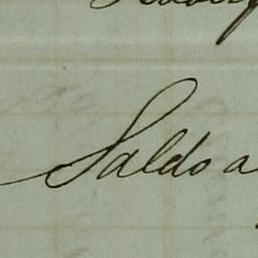 Saldo a